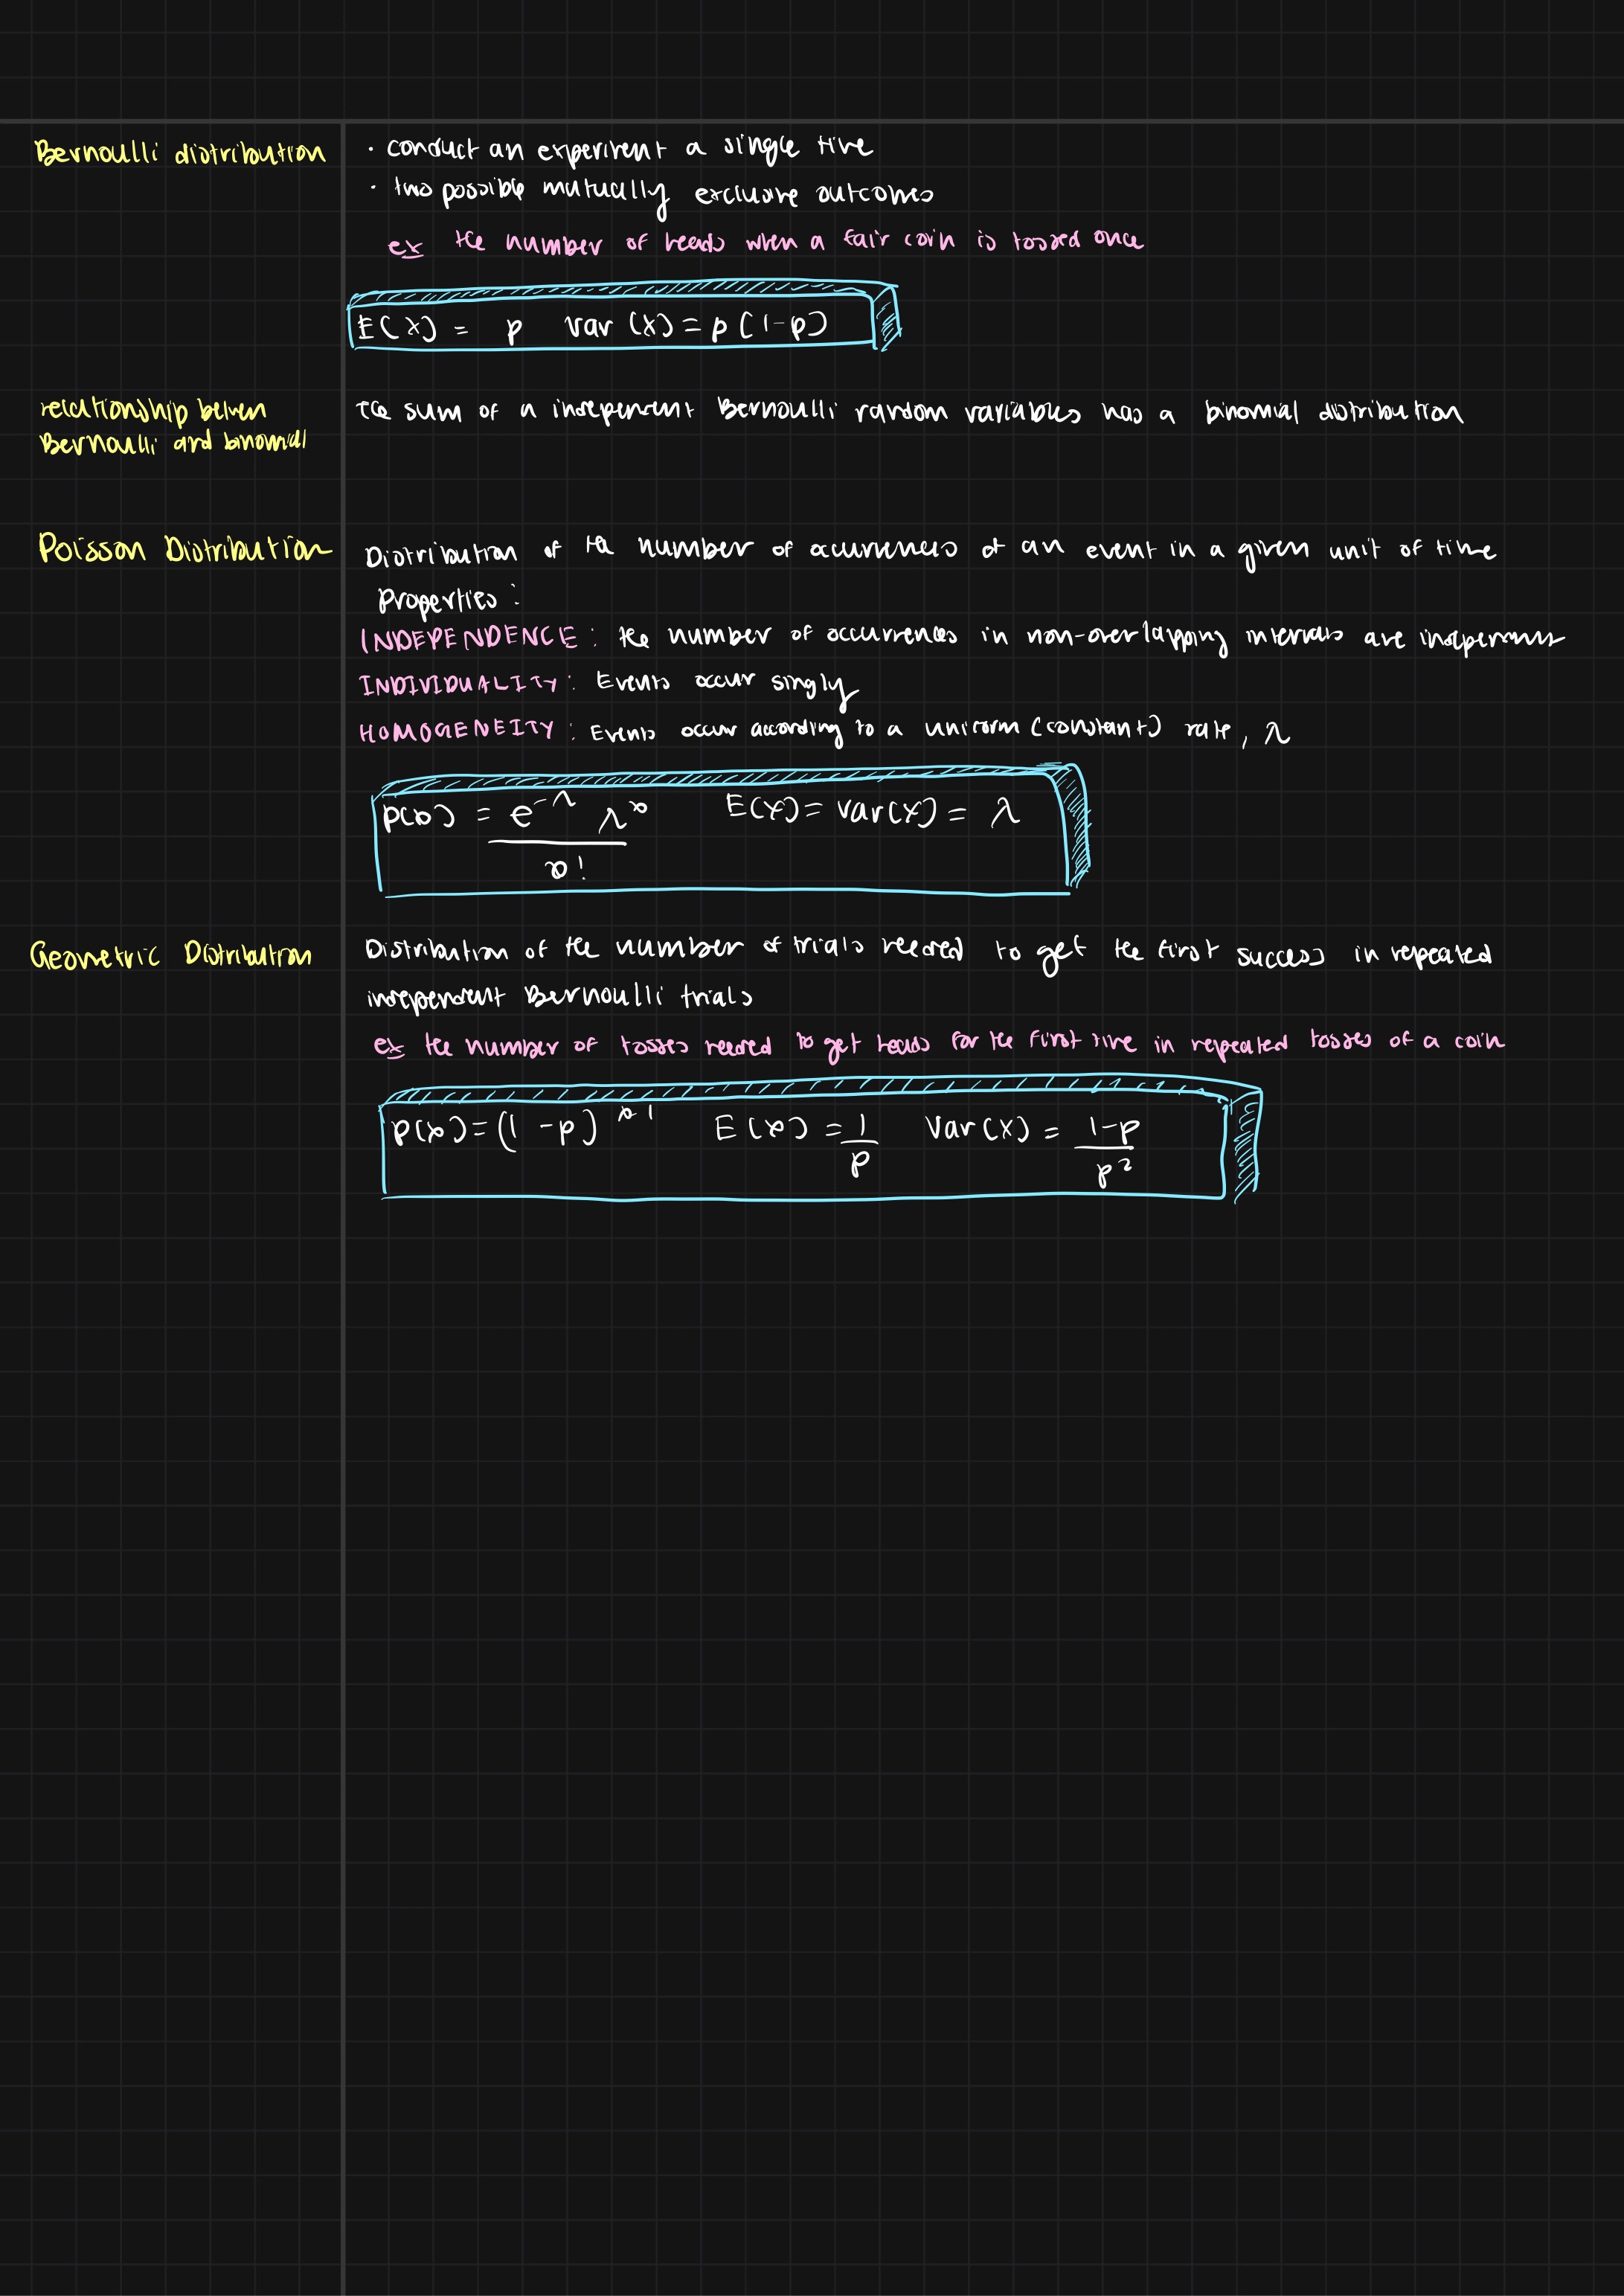 Bernoulli distribution
· conduct an experiment a single time
· two possible mutually exclusive outcomes
ex the number of heads when a fair coin is tossed once
E(X) = p var (X) = p(1-p)
relationship between
Bernoulli and binomial
the sum of n independent Bernoulli random variables has a binomial distribution
Poisson Distribution
Distribution of the number of occurrences of an event in a given unit of time
Properties:
INDEPENDENCE: the number of occurrences in non-overlapping intervals are independent
INDIVIDUALITY: Events occur singly
HOMOGENEITY: Events occur according to a uniform (constant) rate, λ
p(x) = e^-λ λ^x / x! E(X) = var(X) = λ
Geometric Distribution
Distribution of the number of trials needed to get the first success in repeated
independent Bernoulli trials
ex the number of tosses needed to get heads for the first time in repeated tosses of a coin
p(x) = (1 - p)^x-1 E(X) = 1/p Var(X) = 1-p / p²